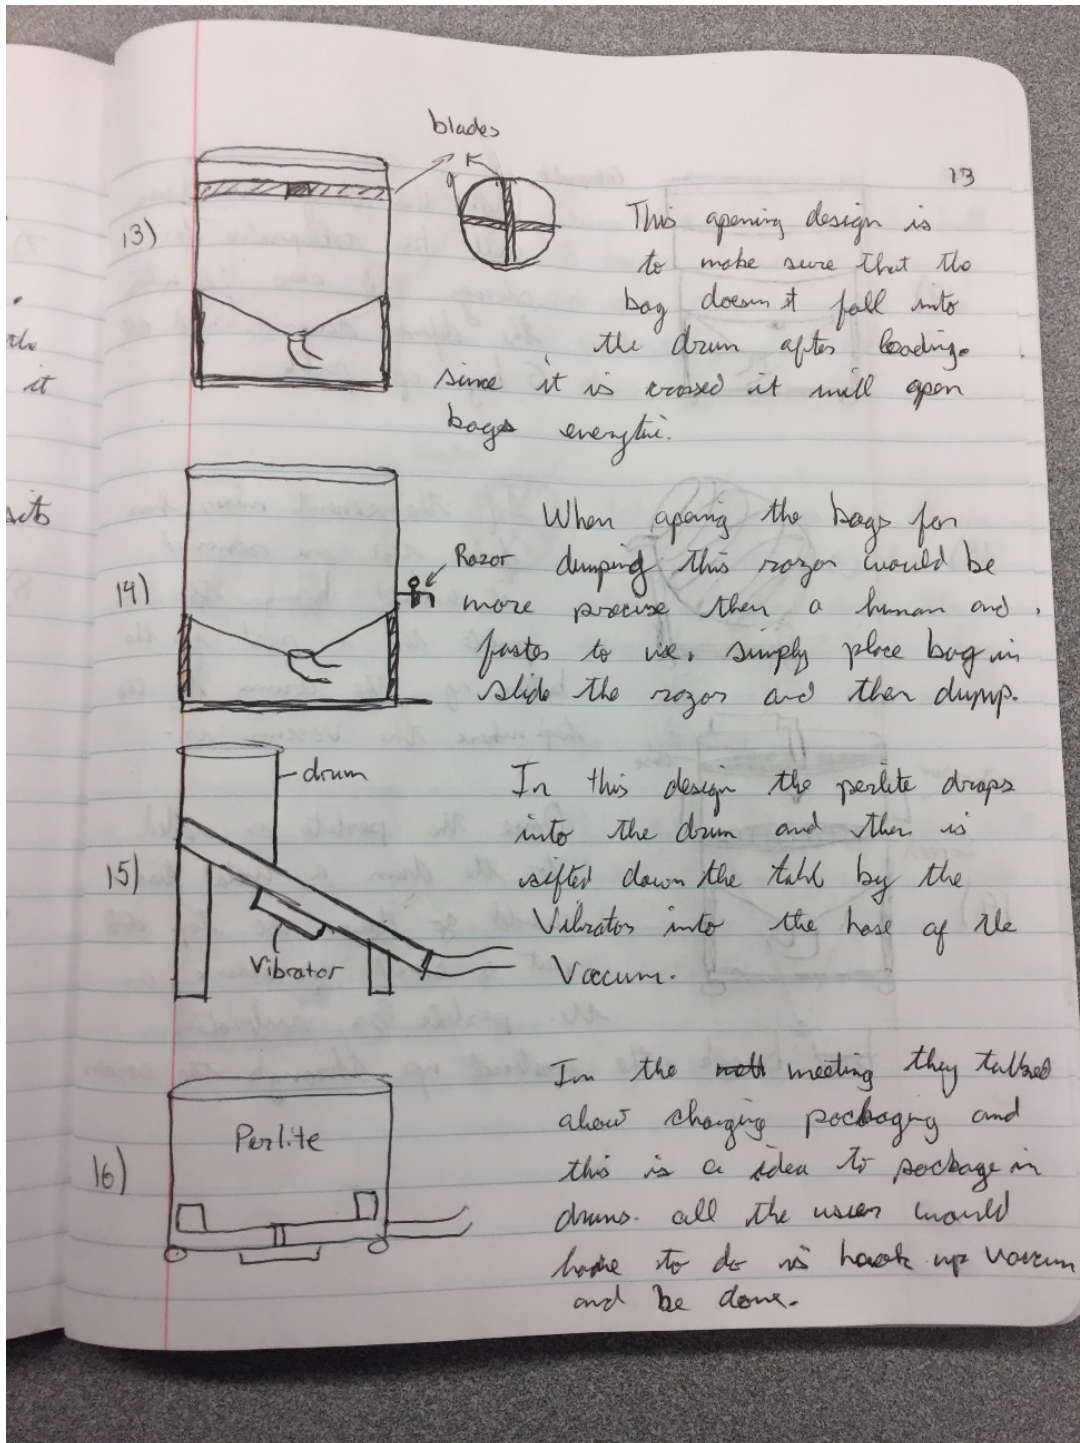 blades
13
13)
This opening design is
to make sure that the
bag doesn't fall into
the drum after loading.
since it is crossed it will open
bags
14)
Razor
When opening the bags for
dumping this razor would be
more precise then a human and
faster to use. simply place bag in
slide the razor and then dump.
15)
drum
Vibrator
In this design the perlite drops
into the drum and then is
sifted down the table by the
Vibrator into the hose of the
Vaccum.
16)
Perlite
In the meeting they talked
about changing packaging and
this is a idea to package in
drums. all the user would
have to do is hook up vaccum
and be done.
the
it